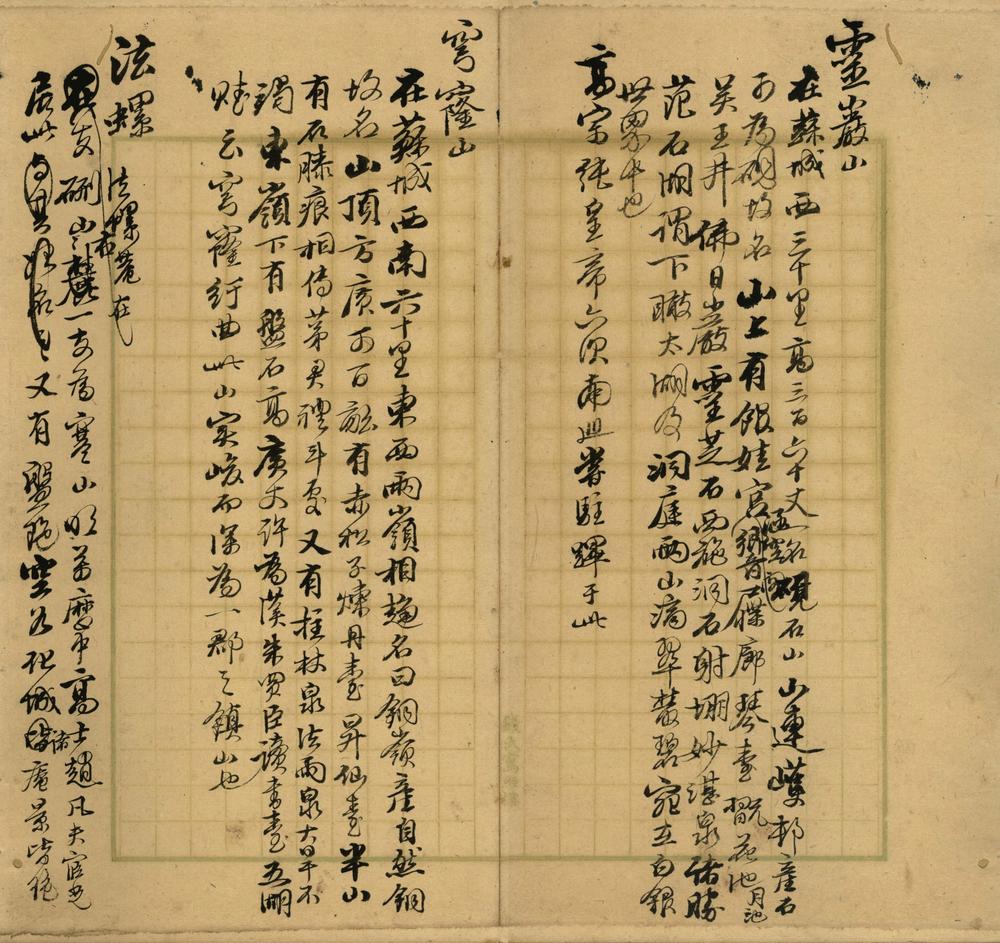 靈巖山
在蘇城西三十里高三百六十丈一名硯石山山連嶁村產石
可為硯故名山上有館娃宮響屧廊琴臺翫花池月池
吳王井佛日巖靈芝石西施洞石射堋妙湛泉諸勝
范石湖謂下瞰太湖及洞庭兩山滴翠叢碧宛在白銀
世界中也
高宗純皇帝六次南巡嘗駐蹕于此
穹窿山
在蘇城西南六十里東西兩嶺相趨名曰銅嶺產自然銅
故名山頂方廣可百畝有赤松子煉丹臺昇仙臺半山
有石膝痕相傳茅君禮斗處又有拄杖泉法雨泉大旱不
竭東嶺下有盤石高廣丈許為漢朱買臣讀書臺五湖
賦云穹窿紆曲此山實峻而深為一郡之鎮山也
法螺
法螺菴在
支硎山之麓一支為寒山明萬曆中高士趙凡夫宦光
居此 又有盤陀空谷化城諸庵景皆絕